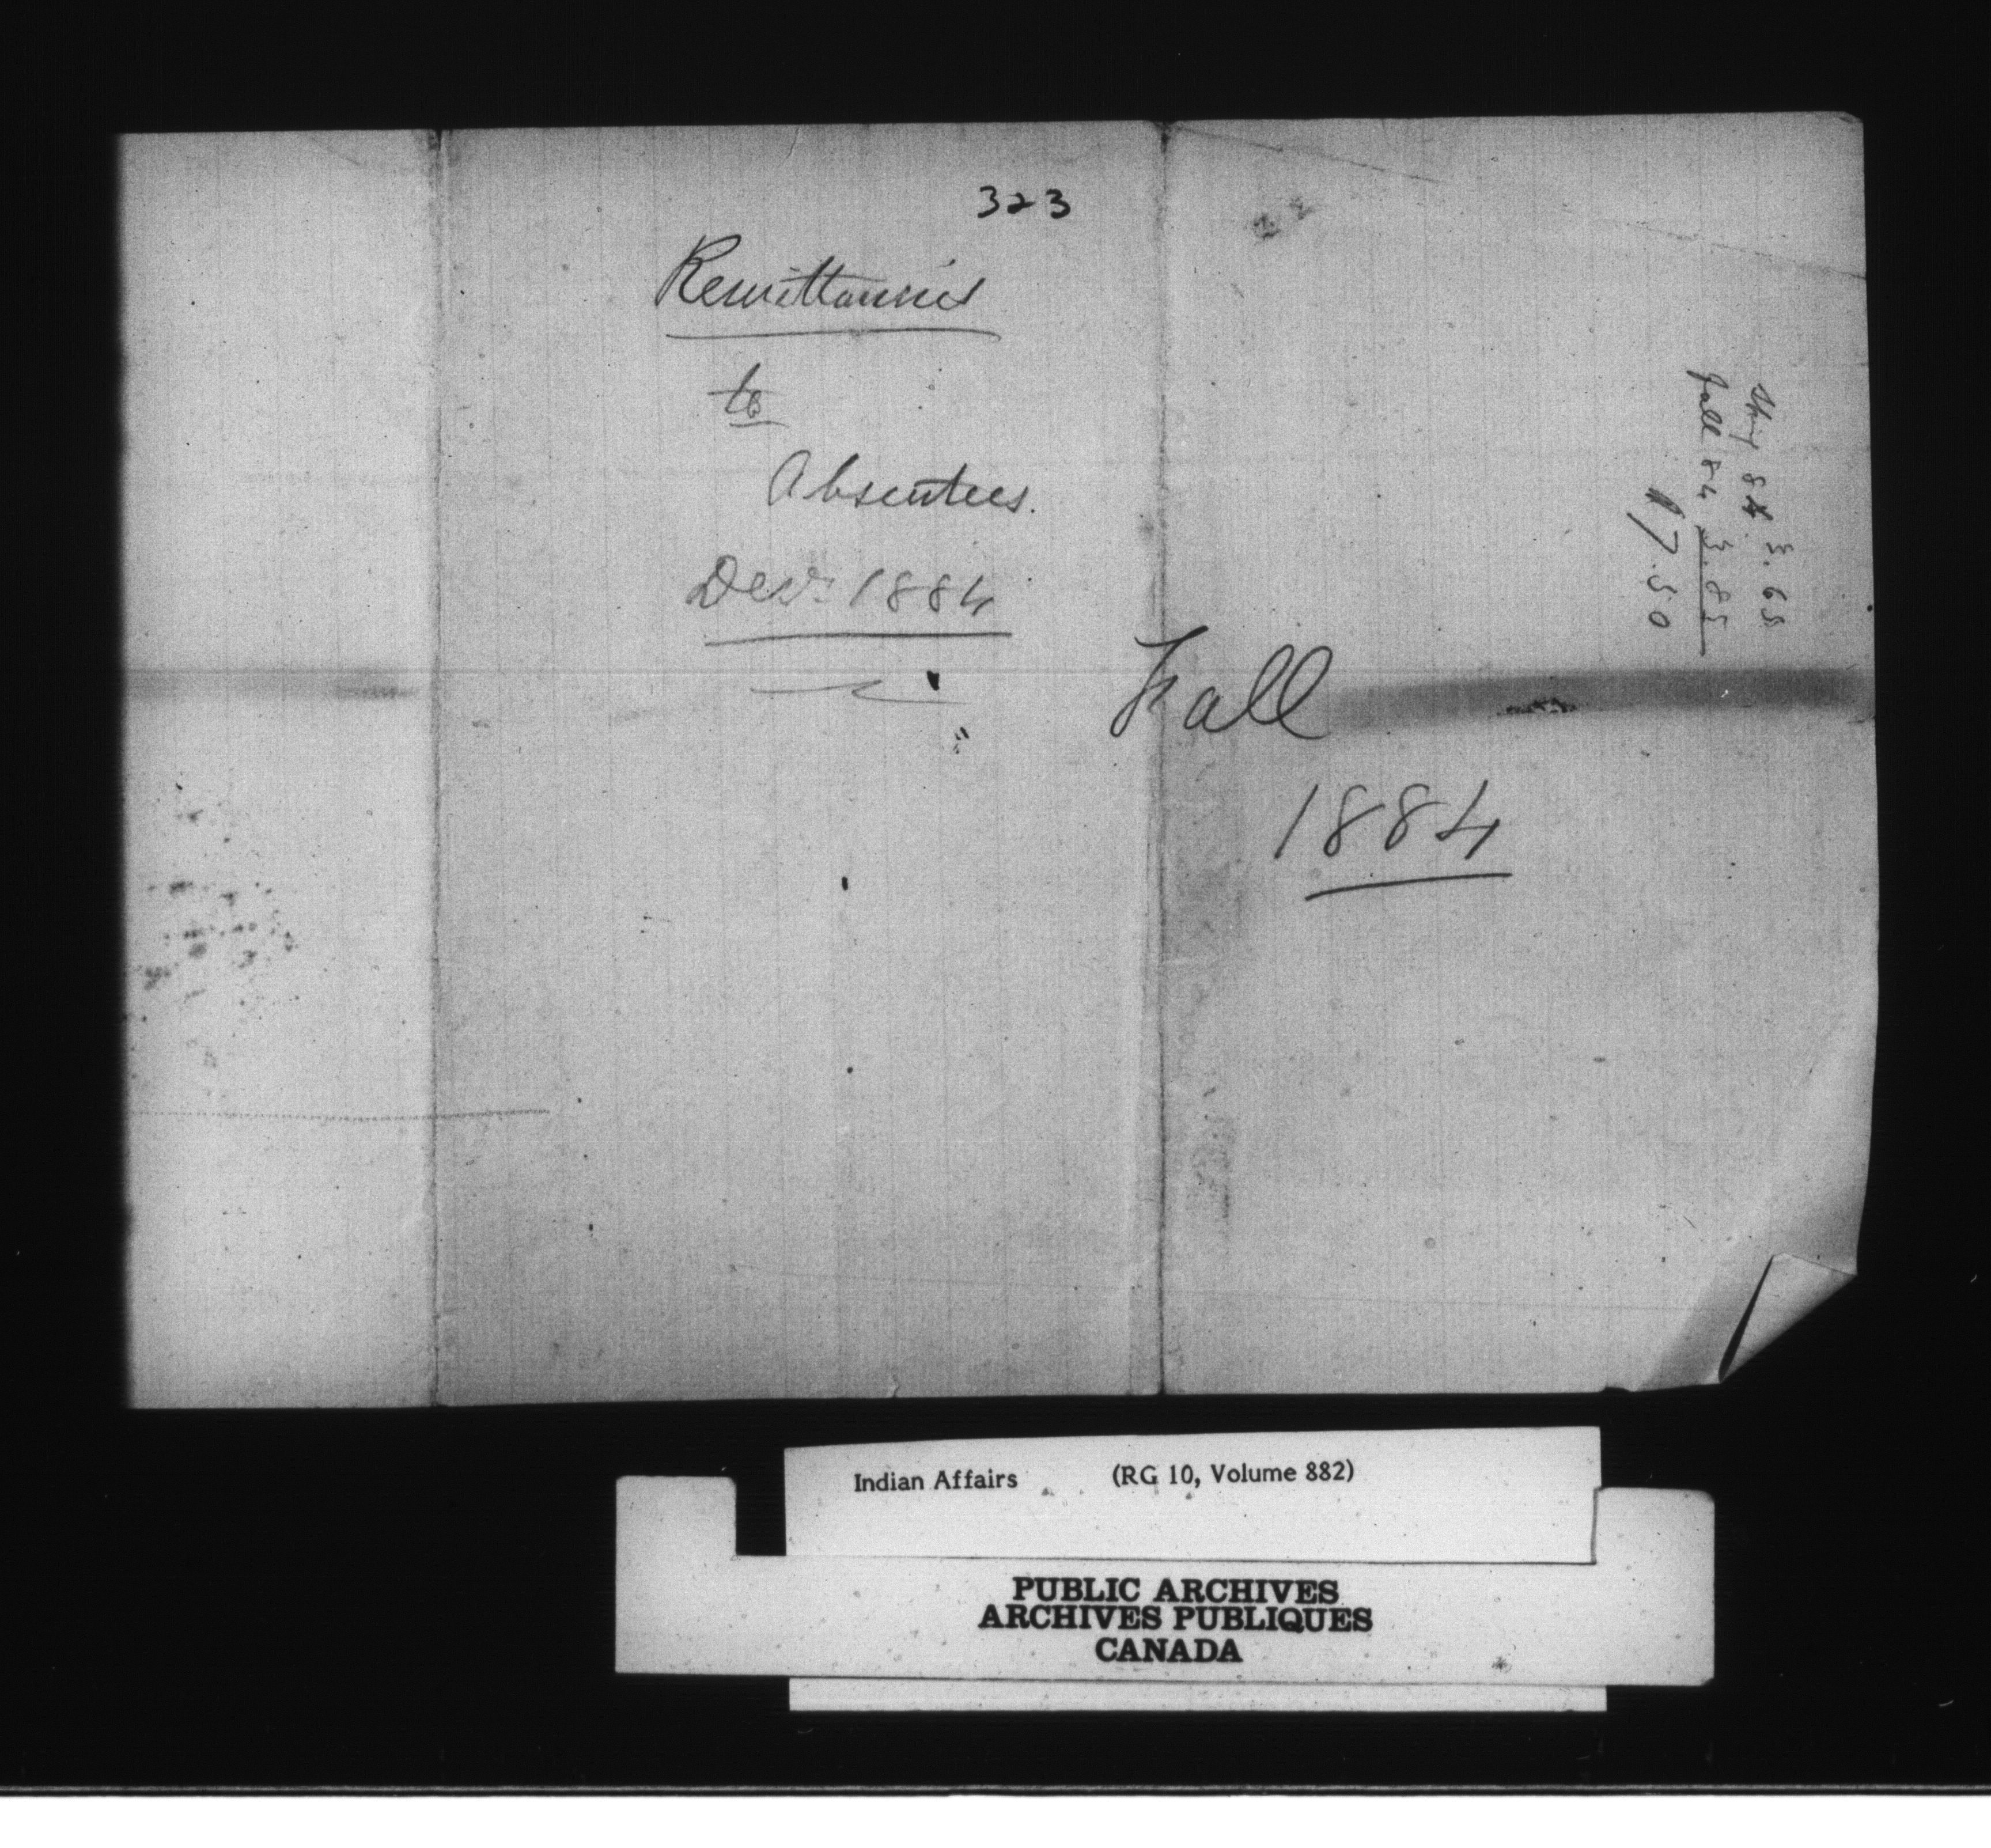 323
Remittances
to
Absentees.
Decr 1884
Fall
1884
Spring 84. 3.65
Fall 84 3.85
$7.50
Indian Affairs (RG 10, Volume 882)
PUBLIC ARCHIVES
ARCHIVES PUBLIQUES
CANADA